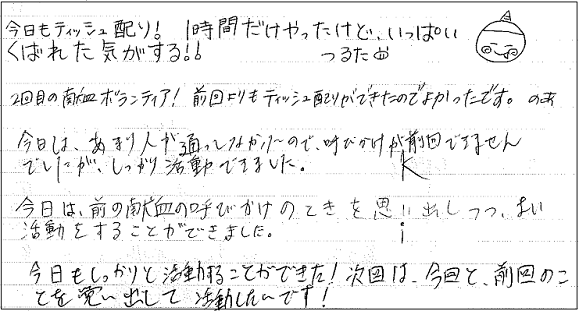 今日もティッシュ配り! 1時間だけやったけど、いっぱい
くばれた気がする!! つるた
2回目の献血ボランティア! 前回よりもティッシュ配りができたのでよかったです。 のあ
今日は、あまり人が通っていなかったので、呼びかけが前回できません
でしたが、しっかり活動できました。 K
今日は、前の献血の呼びかけのときを思い出しつつ、よい
活動をすることができました。 i
今日もしっかりと活動することができた! 次回は、今回と、前回のこ
とを思い出して活動したいです!